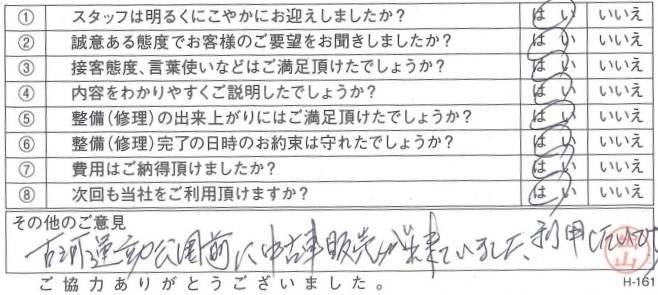 ① スタッフは明るくにこやかにお迎えしましたか？ はい いいえ
② 誠意ある態度でお客様のご要望をお聞きしましたか？ はい いいえ
③ 接客態度、言葉使いなどはご満足頂けたでしょうか？ はい いいえ
④ 内容をわかりやすくご説明したでしょうか？ はい いいえ
⑤ 整備(修理)の出来上がりにはご満足頂けたでしょうか？ はい いいえ
⑥ 整備(修理)完了の日時のお約束は守れたでしょうか？ はい いいえ
⑦ 費用はご納得頂けましたか？ はい いいえ
⑧ 次回も当社をご利用頂けますか？ はい いいえ
その他のご意見
古河運動公園前に中古車販売が出来ていました、利用したいです
ご協力ありがとうございました。
H-161